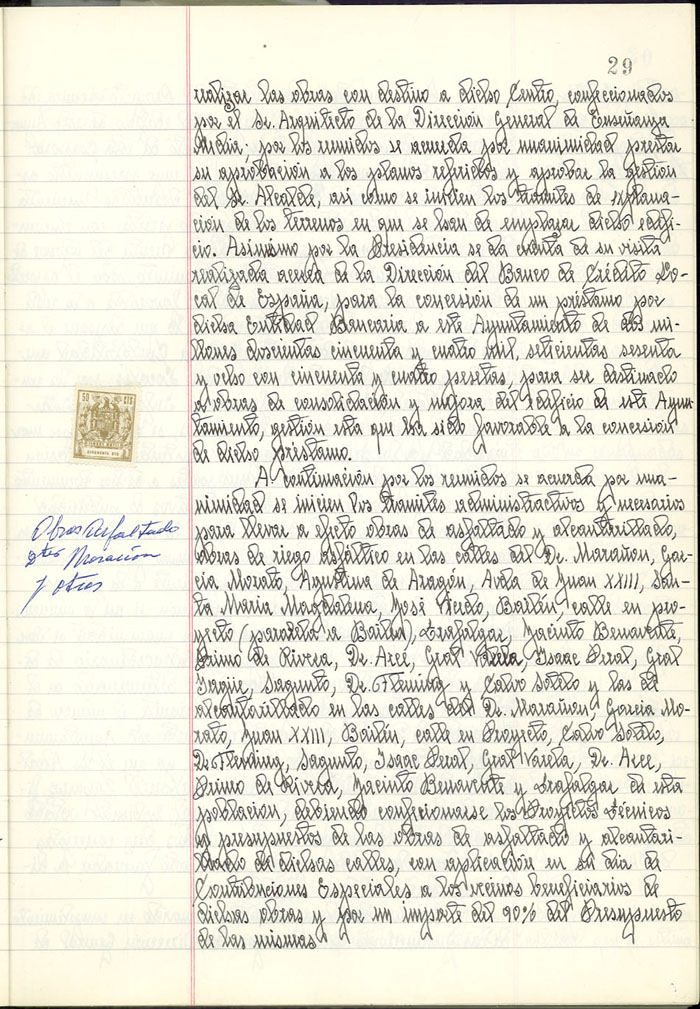 29
realizar las obras con destino a dicho Centro, confeccionados
por el Sr. Arquitecto de la Dirección General de Enseñanza
Media; por los reunidos se acuerda por unanimidad prestar
su aprobación a los planos referidos y aprobar la gestión
del Sr. Alcalde, así como se inicien los trámites de explana-
ción de los terrenos en que se han de emplazar dicho edifi-
cio. Asimismo por la Presidencia se da cuenta de su visita
realizada acerca de la Dirección del Banco de Crédito Lo-
cal de España, para la concesión de un préstamo por
dicha Entidad Bancaria a este Ayuntamiento de dos mi-
llones doscientas cincuenta y cuatro mil, setecientas sesenta
y ocho con cincuenta y cuatro pesetas, para ser destinado
a obras de consolidación y mejora del edificio de este Ayun-
tamiento, gestión esta que ha sido favorable a la concesión
de dicho préstamo.
50 CTS
A continuación por los reunidos se acuerda por una-
nimidad se inicien los trámites administrativos y necesarios
para llevar a efecto obras de asfaltado y alcantarillado,
obras de riego asfáltico en las calles del Dr. Marañon, Gar-
cia Morato, Agustina de Aragón, Avda de Juan XXIII, San-
ta Maria Magdalena, José Bailén, calle en pro-
yecto (paralela a Bailén), Trafalgar, Jacinto Benavente,
Primo de Rivera, Dr. Arce, Gral Varela, Isaac Peral, Gral
Yagüe, Sagunto, Dr. Fleming y Calvo Sotelo y las de
alcantarillado en las calles del Dr. Marañon, Garcia Mo-
rato, Juan XXIII, Bailén, calle en Proyecto, Calvo Sotelo,
Dr Fleming, Sagunto, Isaac Peral, Gral Varela, Dr. Arce,
Primo de Rivera, Jacinto Benavente y Trafalgar de esta
población, debiendo confeccionarse los Proyectos Técnicos
y presupuestos de las obras de asfaltado y alcantari-
llado de dichas calles, con aplicación en su dia de
Contribuciones Especiales a los vecinos beneficiarios de
dichas obras y por un importe del 90% del Presupuesto
de las mismas.
Obras Asfaltado
Dtor Marañon
y otras